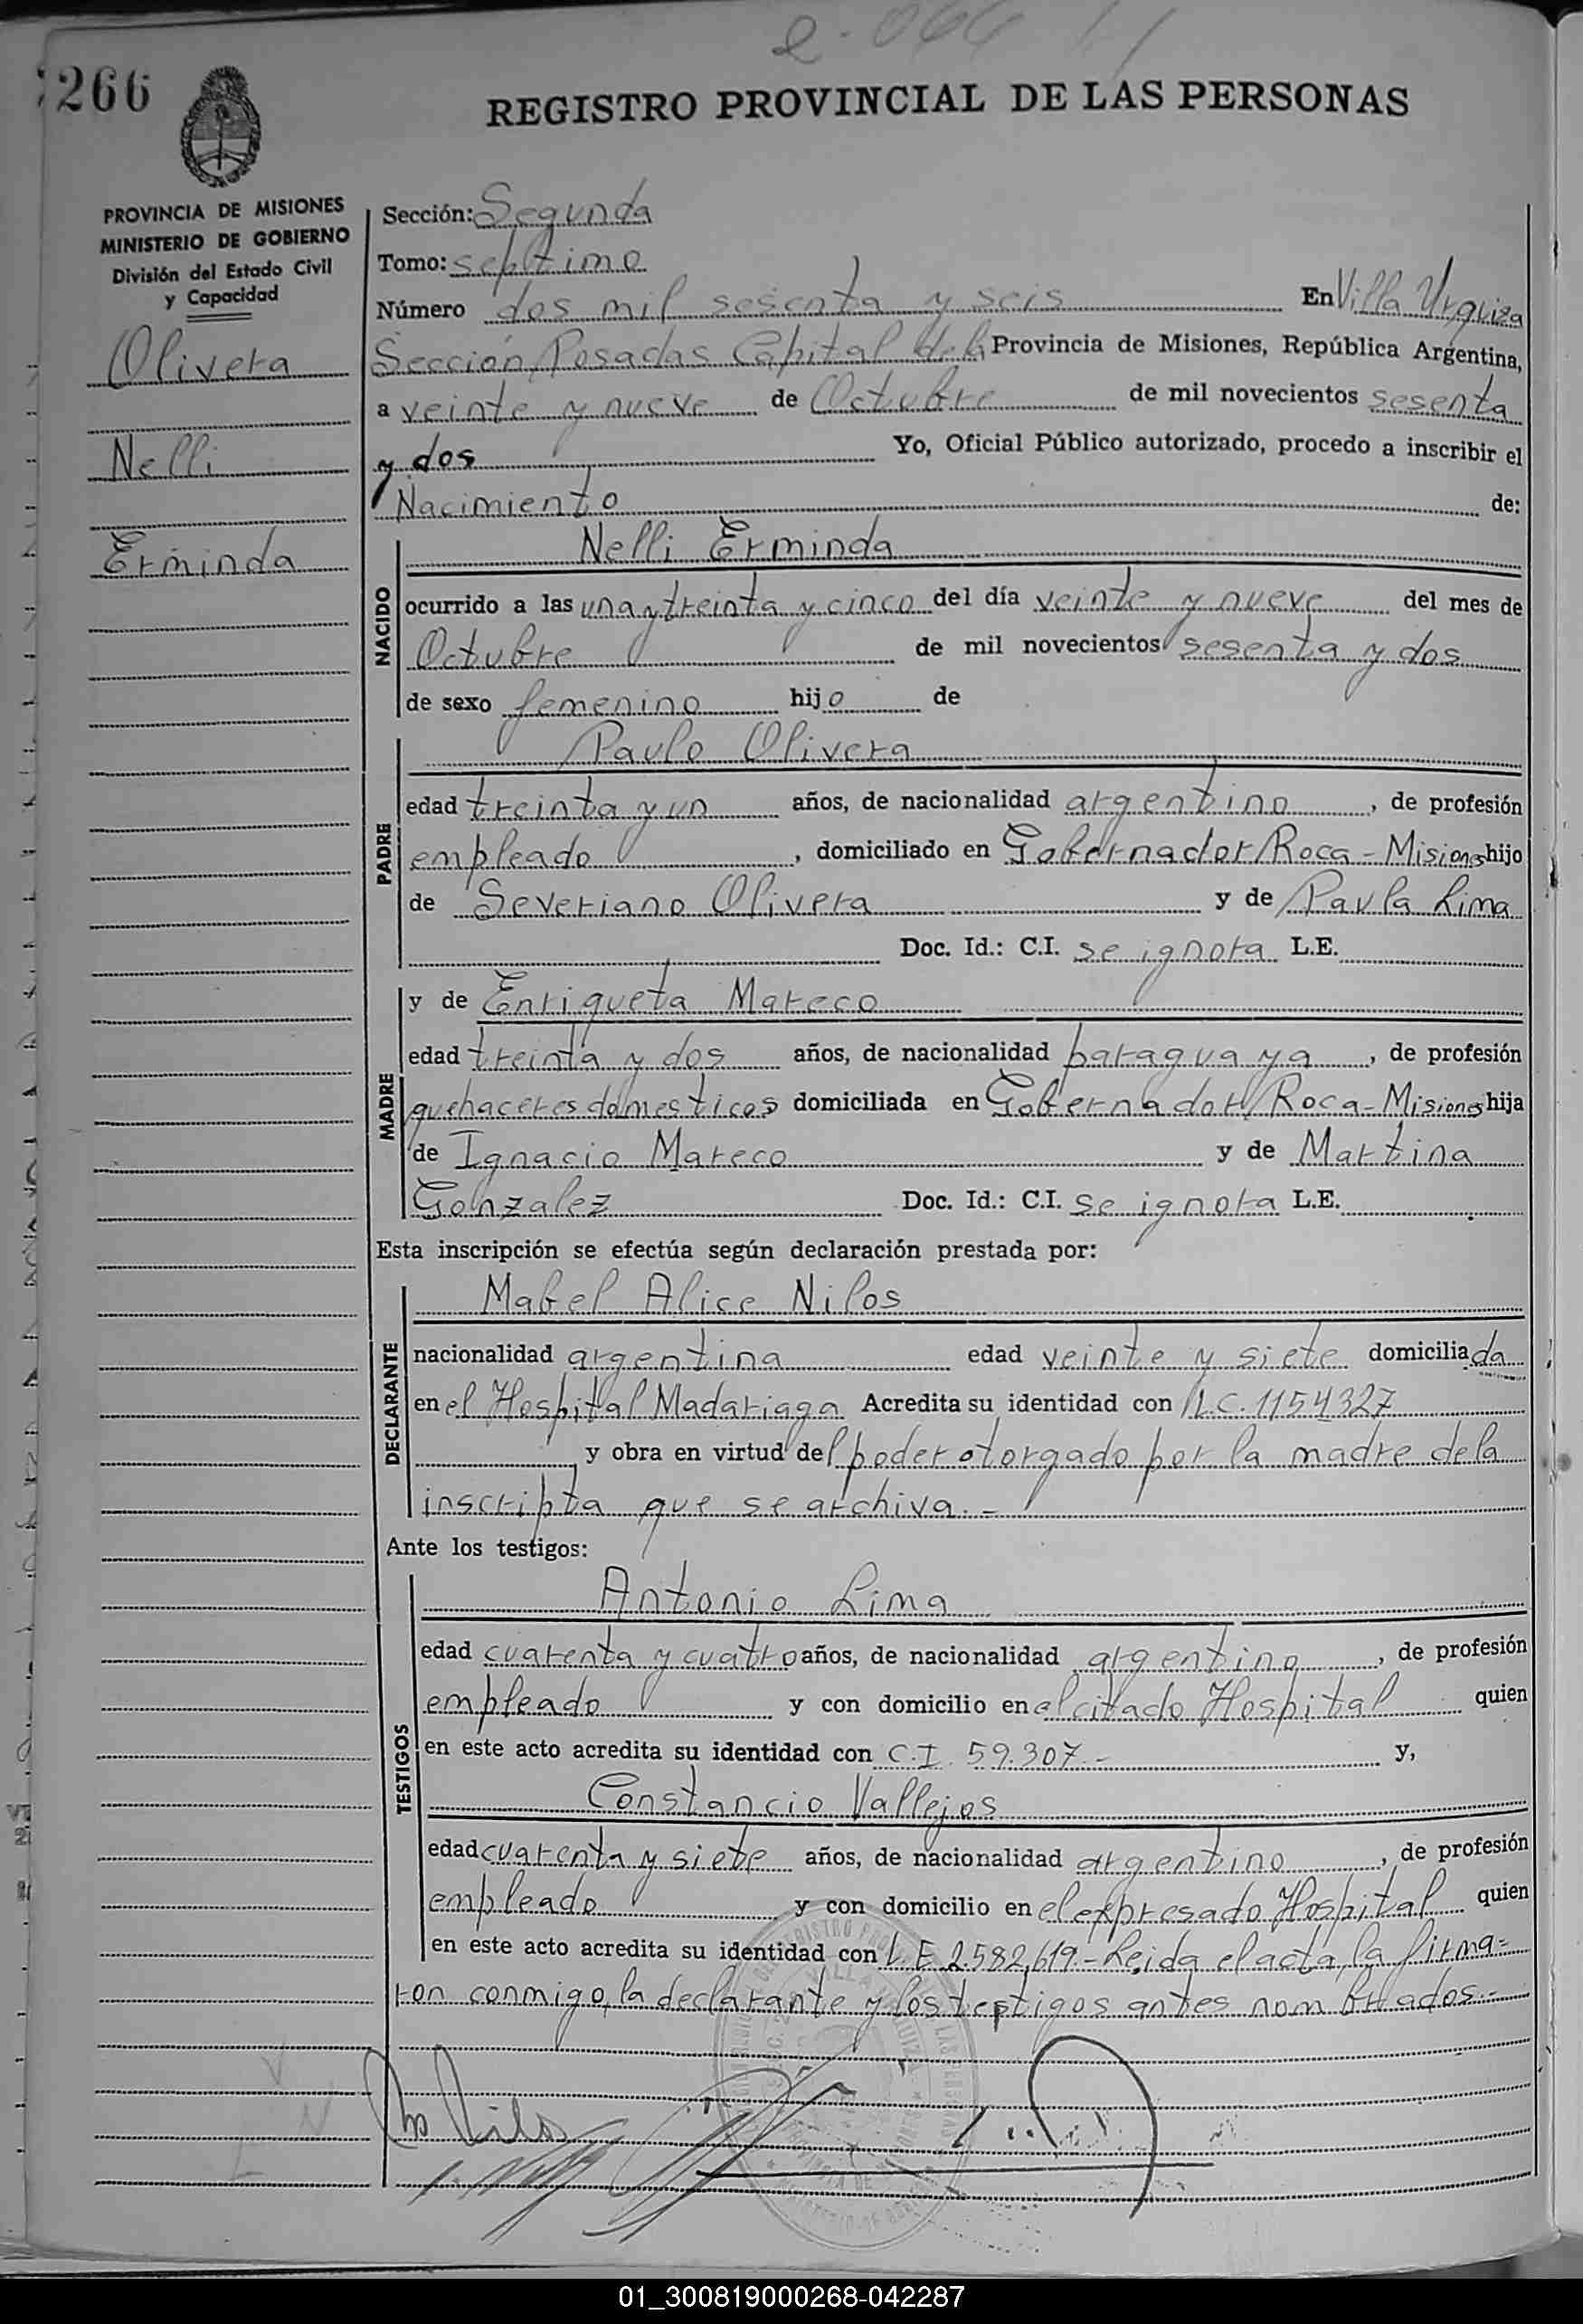 2.066
266
REGISTRO PROVINCIAL DE LAS PERSONAS
PROVINCIA DE MISIONES
MINISTERIO DE GOBIERNO
División del Estado Civil
y Capacidad
Olivera
Nelli
Erminda
Sección: Segunda
Tomo: septimo
Número dos mil sesenta y seis En Villa Urquiza
Sección Posadas Capital de la Provincia de Misiones, República Argentina,
a veinte y nueve de Octubre de mil novecientos sesenta
y dos Yo, Oficial Público autorizado, procedo a inscribir el
Nacimiento de:
NACIDO
Nelli Erminda
ocurrido a las una y treinta y cinco del día veinte y nueve del mes de
Octubre de mil novecientos sesenta y dos
de sexo femenino hijo de
PADRE
Paulo Olivera
edad treinta y un años, de nacionalidad argentino, de profesión
empleado, domiciliado en Gobernador Roca - Misiones hijo
de Severiano Olivera y de Paula Lima
Doc. Id.: C.I. se ignora L.E.
MADRE
y de Enriqueta Mareco
edad treinta y dos años, de nacionalidad paraguaya, de profesión
quehaceres domesticos domiciliada en Gobernador Roca - Misiones hija
de Ignacio Mareco y de Martina
Gonzalez Doc. Id.: C.I. se ignora L.E.
Esta inscripción se efectúa según declaración prestada por:
DECLARANTE
Mabel Alice Nilos
nacionalidad argentina edad veinte y siete domiciliada
en el Hospital Madariaga Acredita su identidad con L.C. 1154327
y obra en virtud del poder otorgado por la madre de la
inscripta que se archiva.-
Ante los testigos:
TESTIGOS
Antonio Lima
edad cuarenta y cuatro años, de nacionalidad argentino, de profesión
empleado y con domicilio en el citado Hospital quien
en este acto acredita su identidad con C.I. 59.307.- y,
Constancio Vallejos
edad cuarenta y siete años, de nacionalidad argentino, de profesión
empleado y con domicilio en el expresado Hospital quien
en este acto acredita su identidad con L.E 2.582,619.- Leida el acta, la firma=
ron conmigo, la declarante y los testigos antes nombrados.-
01_300819000268-042287